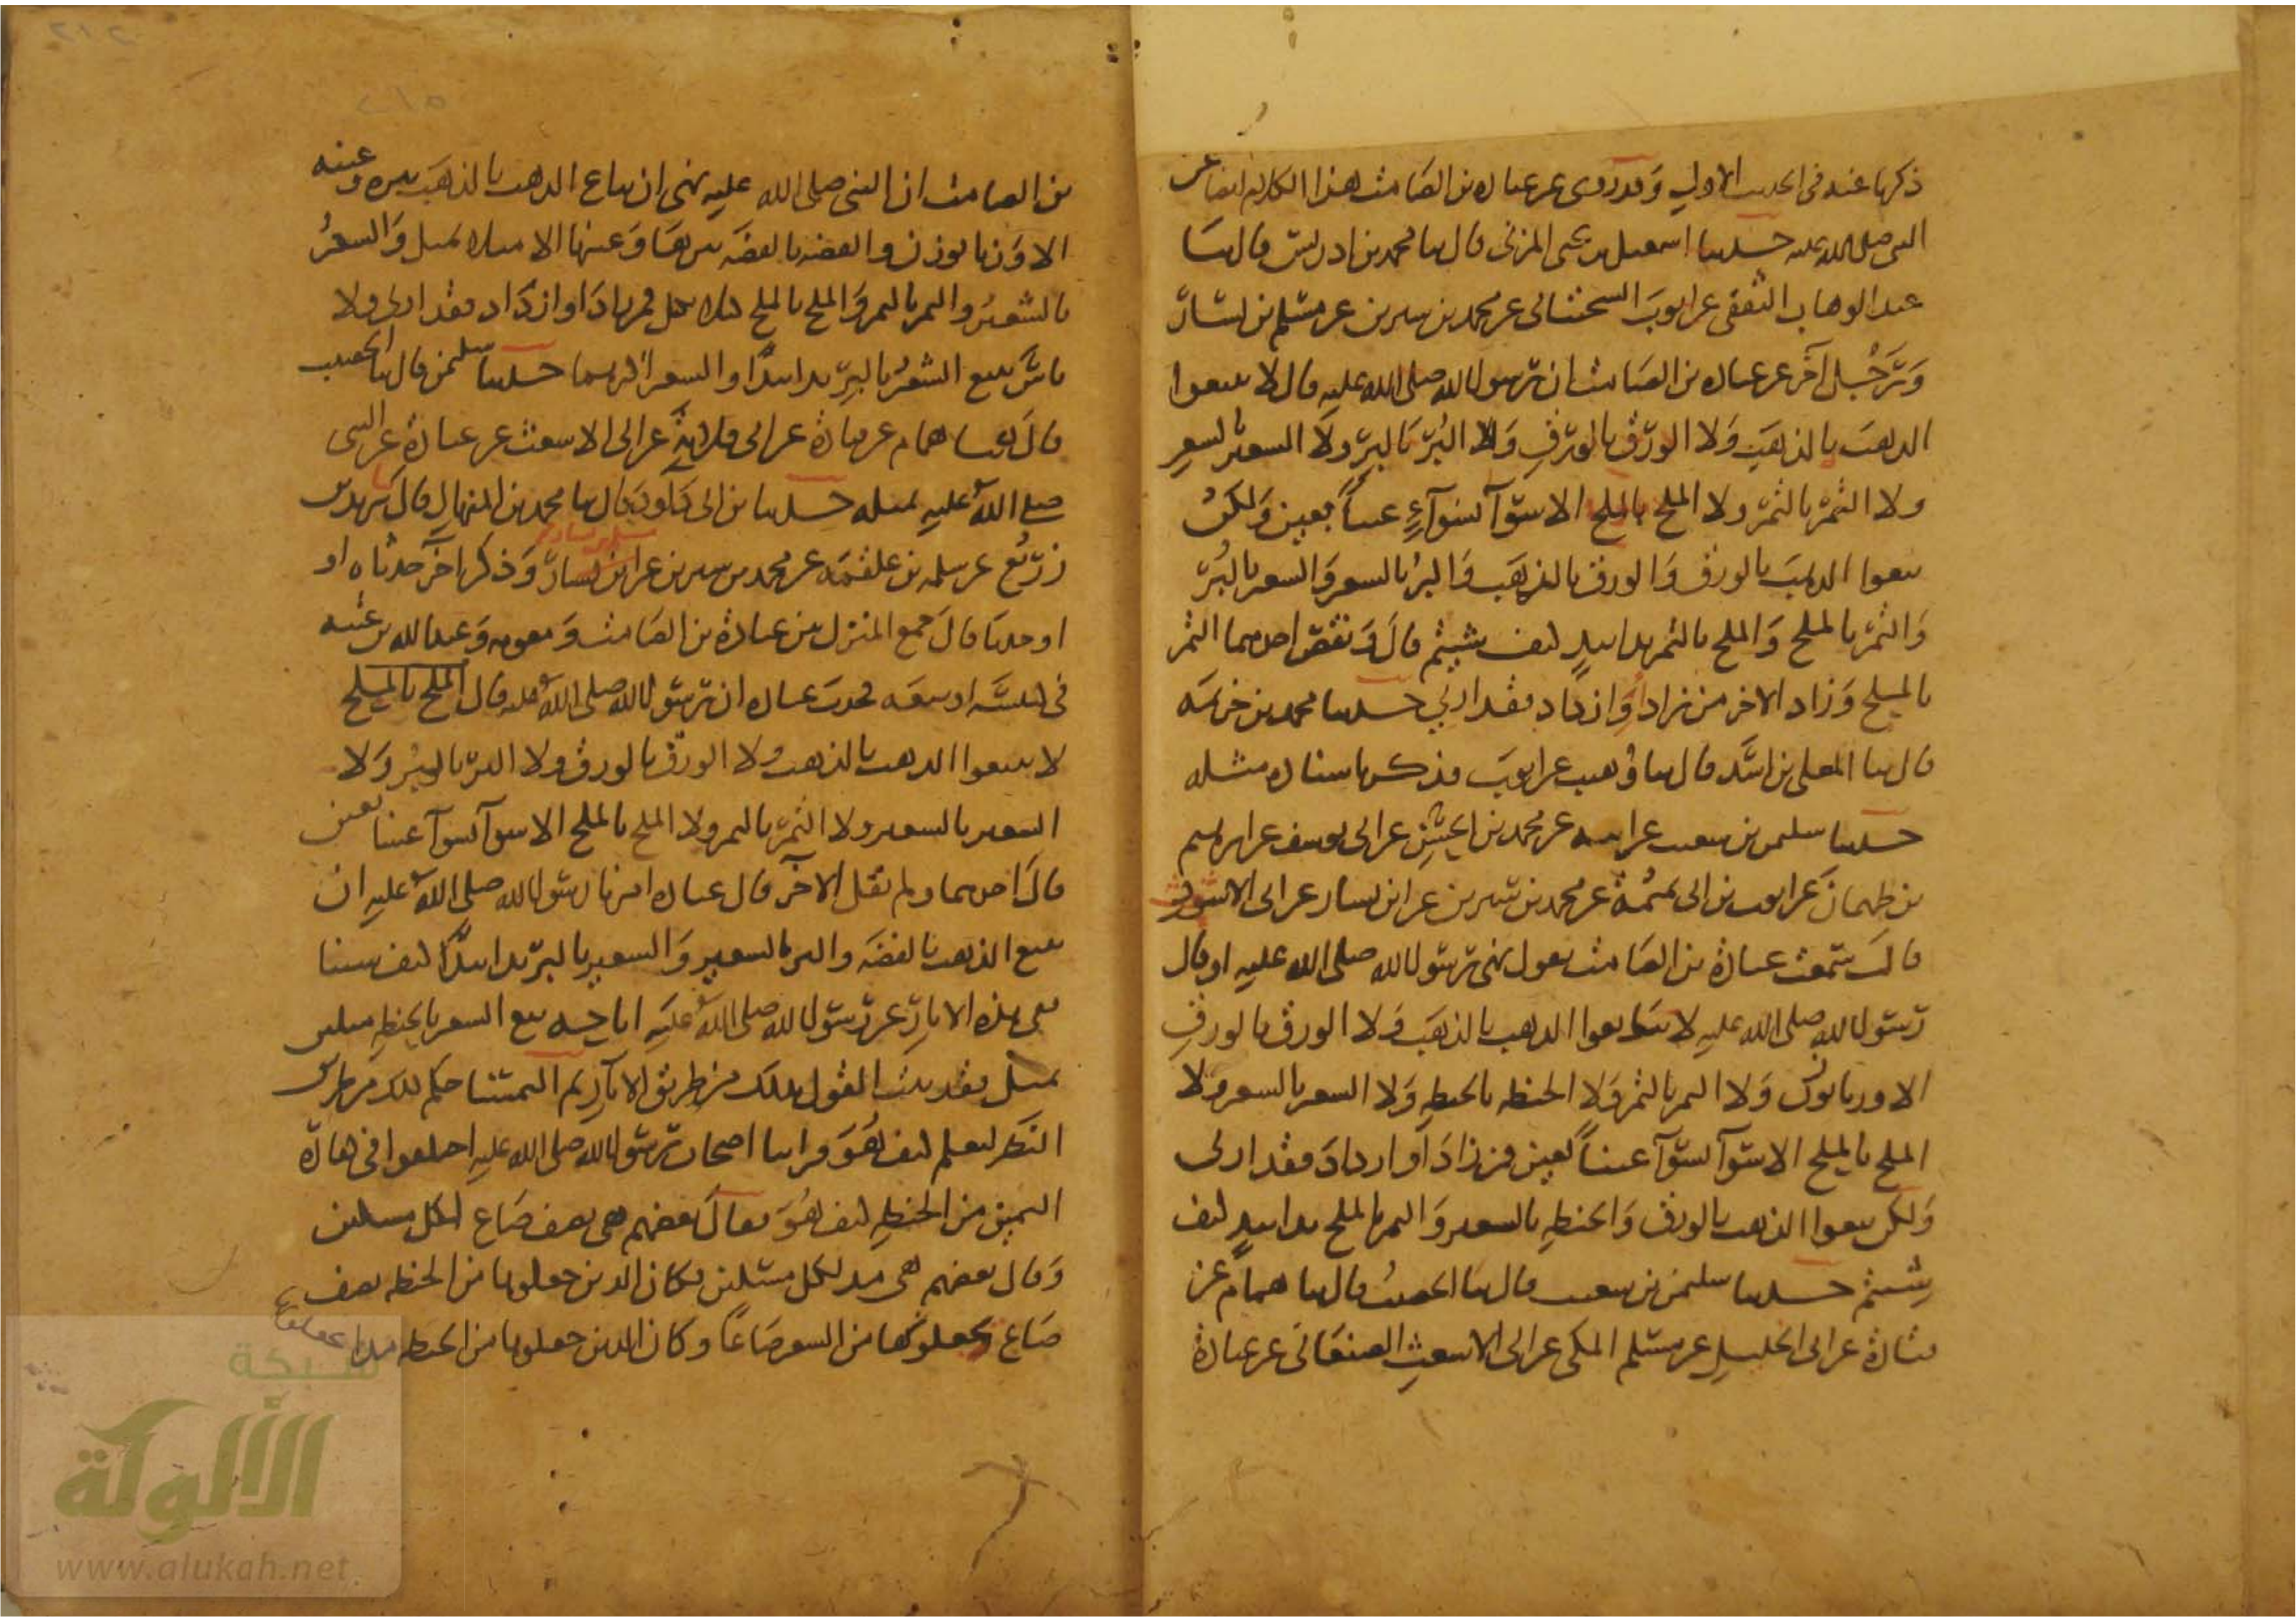 ذكرها عنه في الحديث الاول وقد روى عن عباده بن الصامت هذا الكلام ايضا عن
النبي صلى الله عليه حدثنا اسمعيل بن يحيى المزني قال ثنا محمد بن ادريس قال ثنا
عبد الوهاب الثقفي عن ايوب السختياني عن محمد بن سيرين عن مسلم بن يسار
ورجل آخر عن عباده بن الصامت ان رسول الله صلى الله عليه قال لا تبيعوا
الذهب بالذهب ولا الورق بالورق ولا البر بالبر ولا الشعير بالشعير
ولا التمر بالتمر ولا الملح بالملح الا سوآ بسوآء عينا بعين ولكن
بيعوا الذهب بالورق والورق بالذهب والبر بالشعير والشعير بالبر
والتمر بالملح والملح بالتمر يدا بيد كيف شيتم قال ونقص احدهما التمر
بالملح وزاد الاخر من زاد او ازداد فقد اربي حدثنا محمد بن خزيمه
قال ثنا المعلى بن اسد قال ثنا وهيب عن ايوب فذكر باسناده مثله
حدثنا سليمن بن شعيب عن ابيه عن محمد بن الحسن عن ابي يوسف عن ابرهيم
بن طهمان عن ايوب بن ابي تميمة عن محمد بن سيرين عن ابن يسار عن ابي الاشعث
قال سمعت عبادة بن الصامت يقول نهى رسول الله صلى الله عليه او قال
رسول الله صلى الله عليه لا تبايعوا الذهب بالذهب ولا الورق بالورق
الا وزنا بوزن ولا التمر بالتمر ولا الحنطه بالحنطه ولا الشعير بالشعير ولا
الملح بالملح الا سوآ بسوآ عينا بعين فمن زاد او ازداد فقد اربى
ولكن بيعوا الذهب بالورق والحنطه بالشعير والتمر بالملح يدا بيد كيف
شيتم حدثنا سليمن بن شعيب قال ثنا الخصيب قال ثنا همام عن
قتادة عن ابي الخليل عن مسلم المكي عن ابي الاشعث الصنعاني عن عبادة
بن الصامت ان النبي صلى الله عليه نهى ان يباع الذهب بالذهب تبره وعينه
الا وزنا بوزن والفضه بالفضه تبرها وعينها الا مثلا بمثل والشعير
بالشعير والتمر بالتمر والملح بالملح مثلا بمثل فمن زاد او ازداد فقد اربى ولا
باس ببيع الشعير بالبر يدا بيد والشعير اكثرهما حدثنا سليمن قال ثنا الخصيب
قال ثنا همام عن قتادة عن ابي قلابة عن ابي الاشعث عن عبادة عن النبي
صلى الله عليه بمثله حدثنا بن ابي داود قال ثنا محمد بن المنهال قال ثنا يزيد بن
زريع عن سلمه بن علقمه عن محمد بن سيرين عن ابن يسار وذكر آخر حدثناه او
او حدثنا قال جمع المنزل بين عبادة بن الصامت ومعويه وعبد الله بن عتبه
في كنيسة او بيعه فحدث عباده ان رسول الله صلى الله عليه قال الملح بالملح
لا تبيعوا الذهب بالذهب ولا الورق بالورق ولا البر بالبر ولا
الشعير بالشعير ولا التمر بالتمر ولا الملح بالملح الا سوآ بسوآ عينا بعين
قال احدهما ولم يقل الآخر قال عباده امرنا رسول الله صلى الله عليه ان
نبيع الذهب بالفضه والبر بالشعير والشعير بالبر يدا بيد كيف شينا
ففي هذه الاثار عن رسول الله صلى الله عليه اباحه بيع الشعير بالحنطه مثلين
بمثل فقد ثبت القول بذلك من طريق الآثار ثم التمسنا حكم ذلك من طريق
النظر لنعلم كيف هو فراينا اصحاب رسول الله صلى الله عليه اختلفوا في كفارة
اليمين من الحنطه كيف هو فقال بعضهم هي نصف صاع لكل مسكين
وقال بعضهم هي مد لكل مسكين فكان الذين جعلوها من الحنطه نصف
صاع يجعلونها من الشعير صاعا وكان الذين جعلوها من الحنطه مدا
شبكة
الألوكة
www.alukah.net